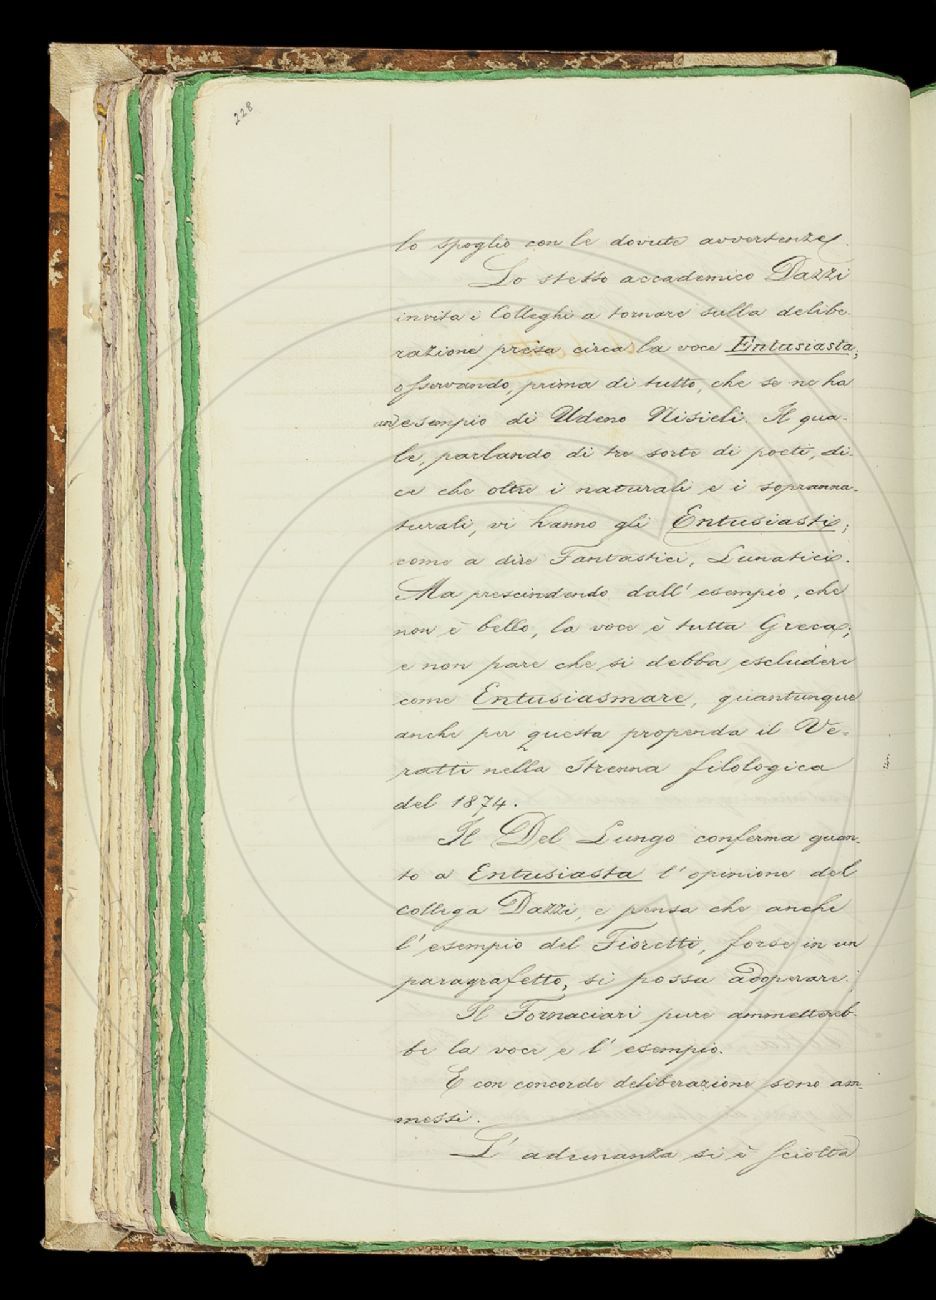 228
lo spoglio con le dovute avvertenze.
Lo stesso accademico Dazzi
invita i Colleghi a tornare sulla delibe-
razione presa circa la voce Entusiasta,
osservando, prima di tutto, che se ne ha
un esempio di Udeno Nisieli. Il qua-
le, parlando di tre sorte di poeti, di-
ce che oltre i naturali e i sopranna-
turali, vi hanno gli Entusiasti;
come a dire Fantastici, Lunatici.
Ma prescindendo dall' esempio, che
non è bello, la voce è tutta Greca;
e non pare che si debba escludere
come Entusiasmare, quantunque
anche per questa propenda il Ve-
ratti nella Strenna filologica
del 1874.
Il Del Lungo conferma quan-
to a Entusiasta l' opinione del
collega Dazzi, e pensa che anche
l' esempio del Fioretti, forse in un
paragrafetto, si possa adoperare.
Il Fornaciari pure ammettereb-
be la voce e l' esempio.
E con concorde deliberazione sono am-
messi.
L' adunanza si è sciolta